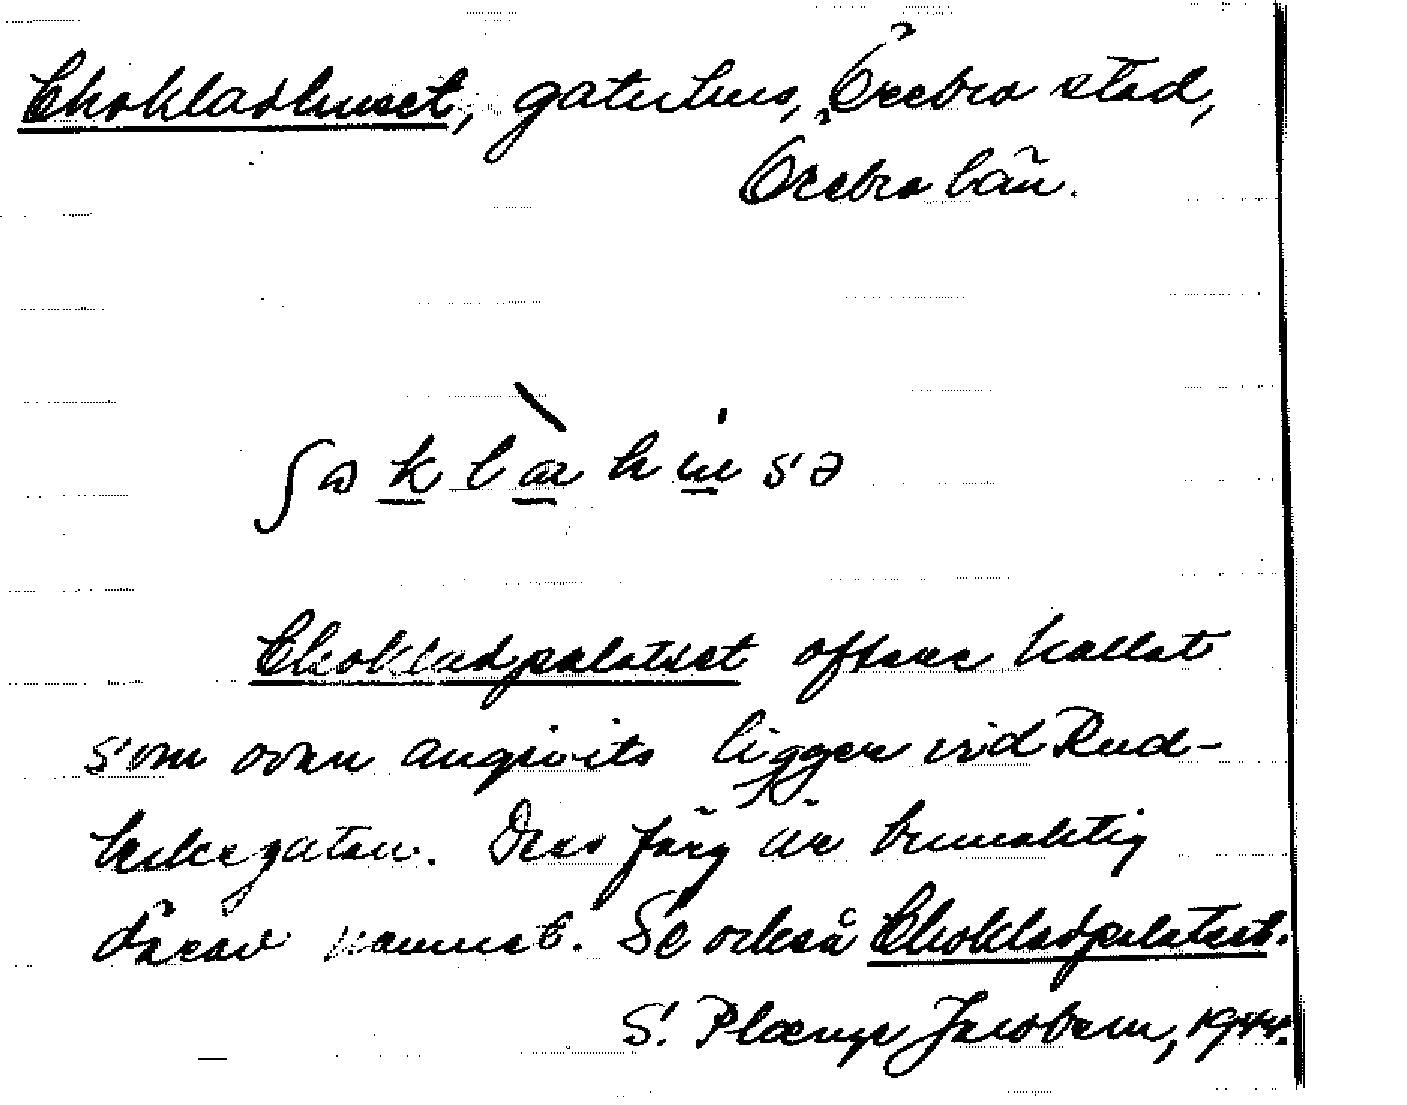 Chokladhuset, gatuhus, Örebro stad,
Örebro län.
ʃɷklàhusə
Chokladpalatset oftare kallat
som ovan angivits ligger vid Rud-
beksgatan. Dess färg är brunaktig
därav namnet. Se också Chokladpalatset.
S. Plænge Jacobson, 1944.